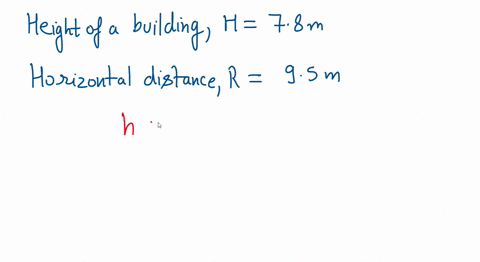 Height of a building, H = 7.8m
Horizontal distance, R = 9.5m
h